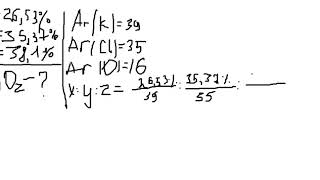 26,53%
=35,37%
=38,1%
O₂-?
Ar(K)=39
Ar(Cl)=35
Ar (O)=16
x:y:z= 26,53%/39 : 35,37%/55 :